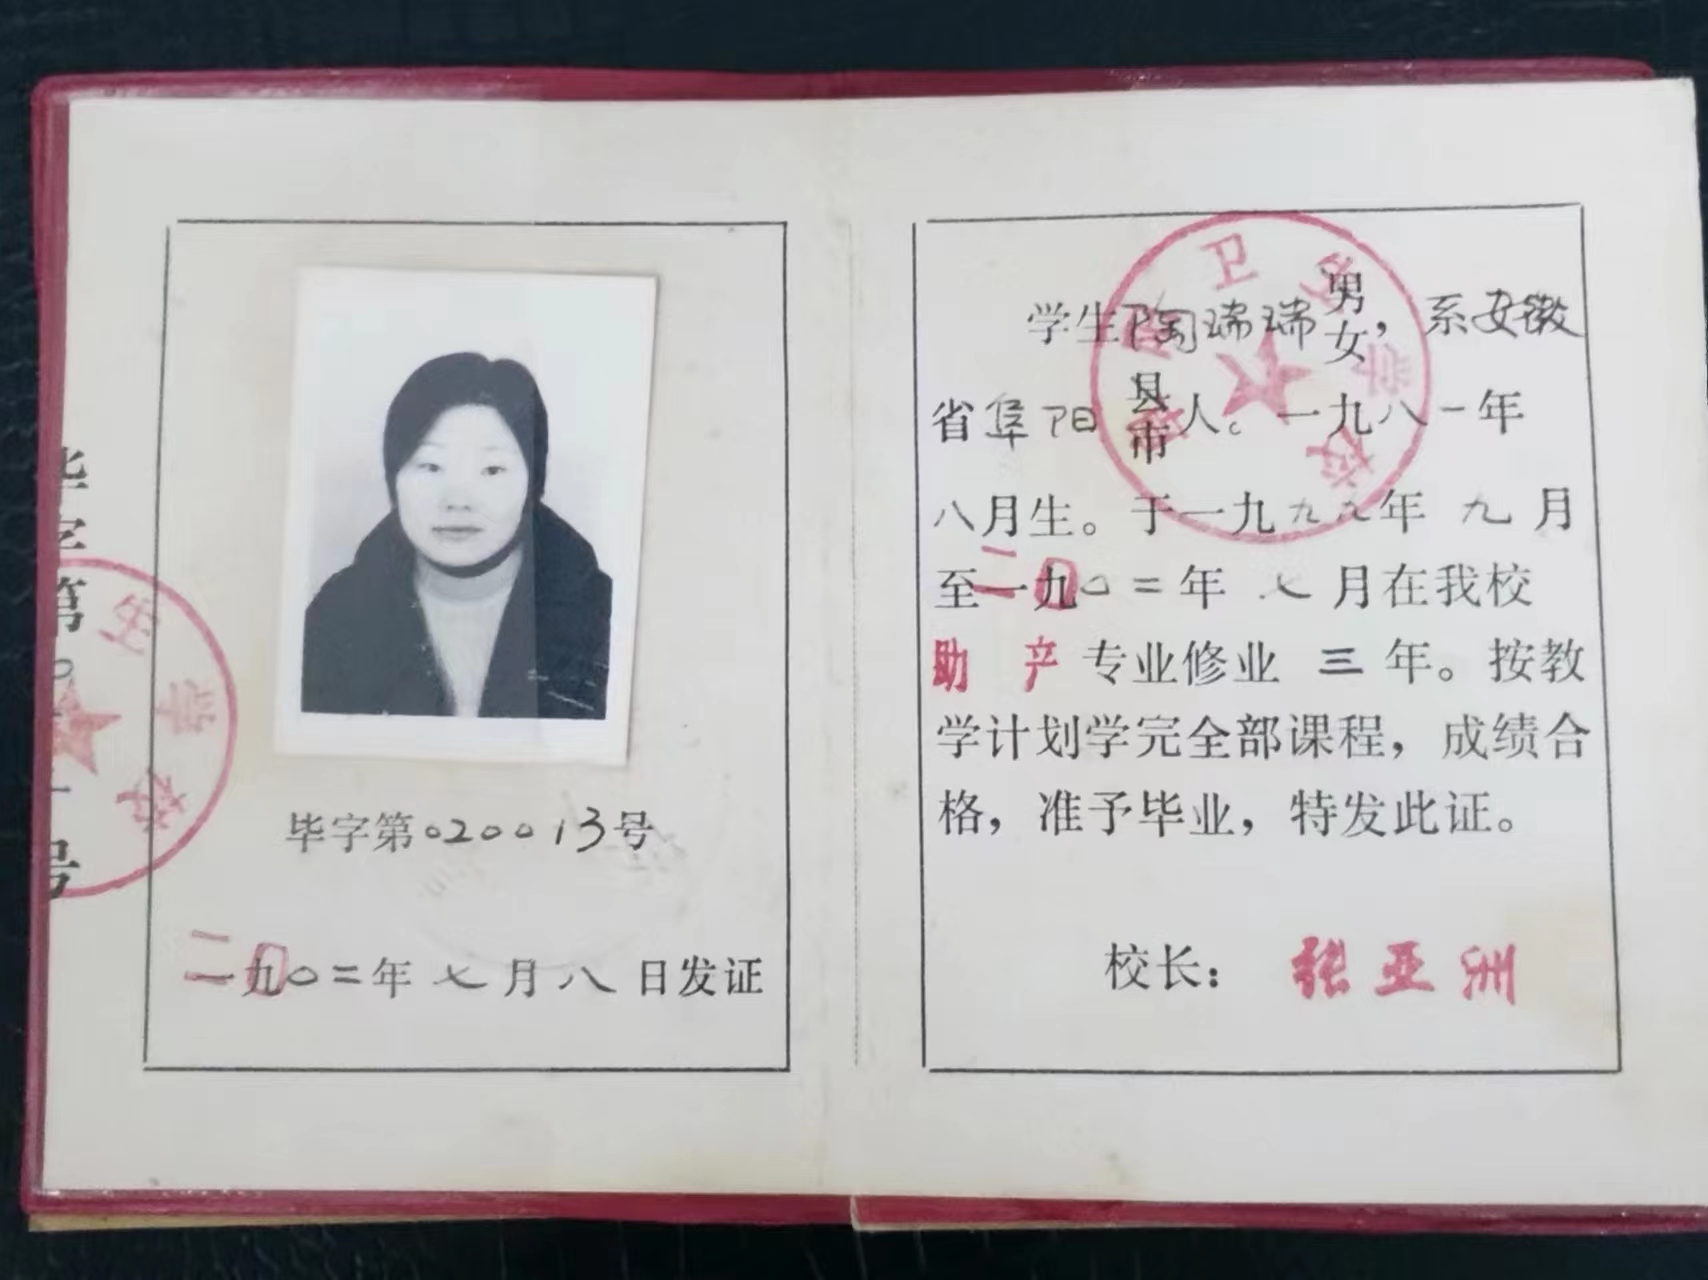 毕字第020013号
二〇〇二年七月八日发证
学生陶瑞瑞男女，系安徽
省阜阳县市人。一九八一年
八月生。于一九九九年九月
至二〇〇二年七月在我校
助产专业修业三年。按教
学计划学完全部课程，成绩合
格，准予毕业，特发此证。
校长：张亚洲
卫生学校
生学校
毕字第
号